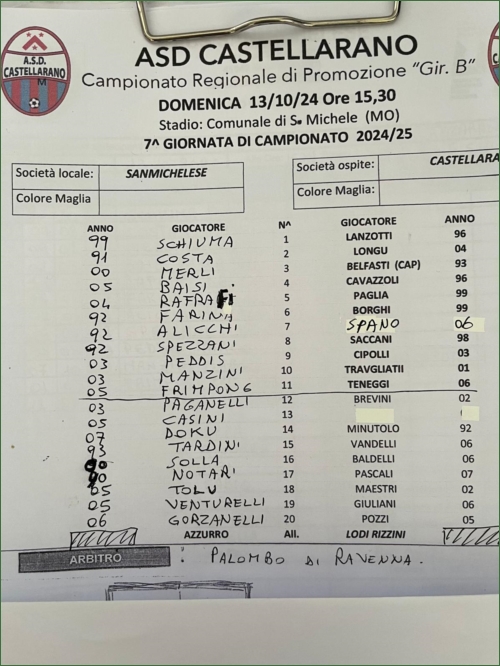 A.S.D.
CASTELLARANO
M
ASD CASTELLARANO
Campionato Regionale di Promozione "Gir. B"
DOMENICA 13/10/24 Ore 15,30
Stadio: Comunale di S. Michele (MO)
7^ GIORNATA DI CAMPIONATO 2024/25
Società locale: SANMICHELESE Società ospite: CASTELLARA
Colore Maglia Colore Maglia:
ANNO GIOCATORE N^ GIOCATORE ANNO
99 SCHIUMA 1 LANZOTTI 96
91 COSTA 2 LONGU 04
00 MERLI 3 BELFASTI (CAP) 93
05 BAISI 4 CAVAZZOLI 96
04 RAFRAFI 5 PAGLIA 99
92 FARINA 6 BORGHI 99
92 ALICCHI 7 SPANO 06
92 SPEZZANI 8 SACCANI 98
03 PEDDIS 9 CIPOLLI 03
03 MANZINI 10 TRAVGLIATII 01
05 FRIMPONG 11 TENEGGI 06
03 PAGANELLI 12 BREVINI 02
05 CASINI 13
07 DOKU 14 MINUTOLO 92
93 TARDINI 15 VANDELLI 06
90 SOLLA 16 BALDELLI 06
90 NOTARI 17 PASCALI 07
05 TOLU 18 MAESTRI 02
05 VENTURELLI 19 GIULIANI 06
06 GORZANELLI 20 POZZI 05
AZZURRO All. LODI RIZZINI
ARBITRO : PALOMBO DI RAVENNA.